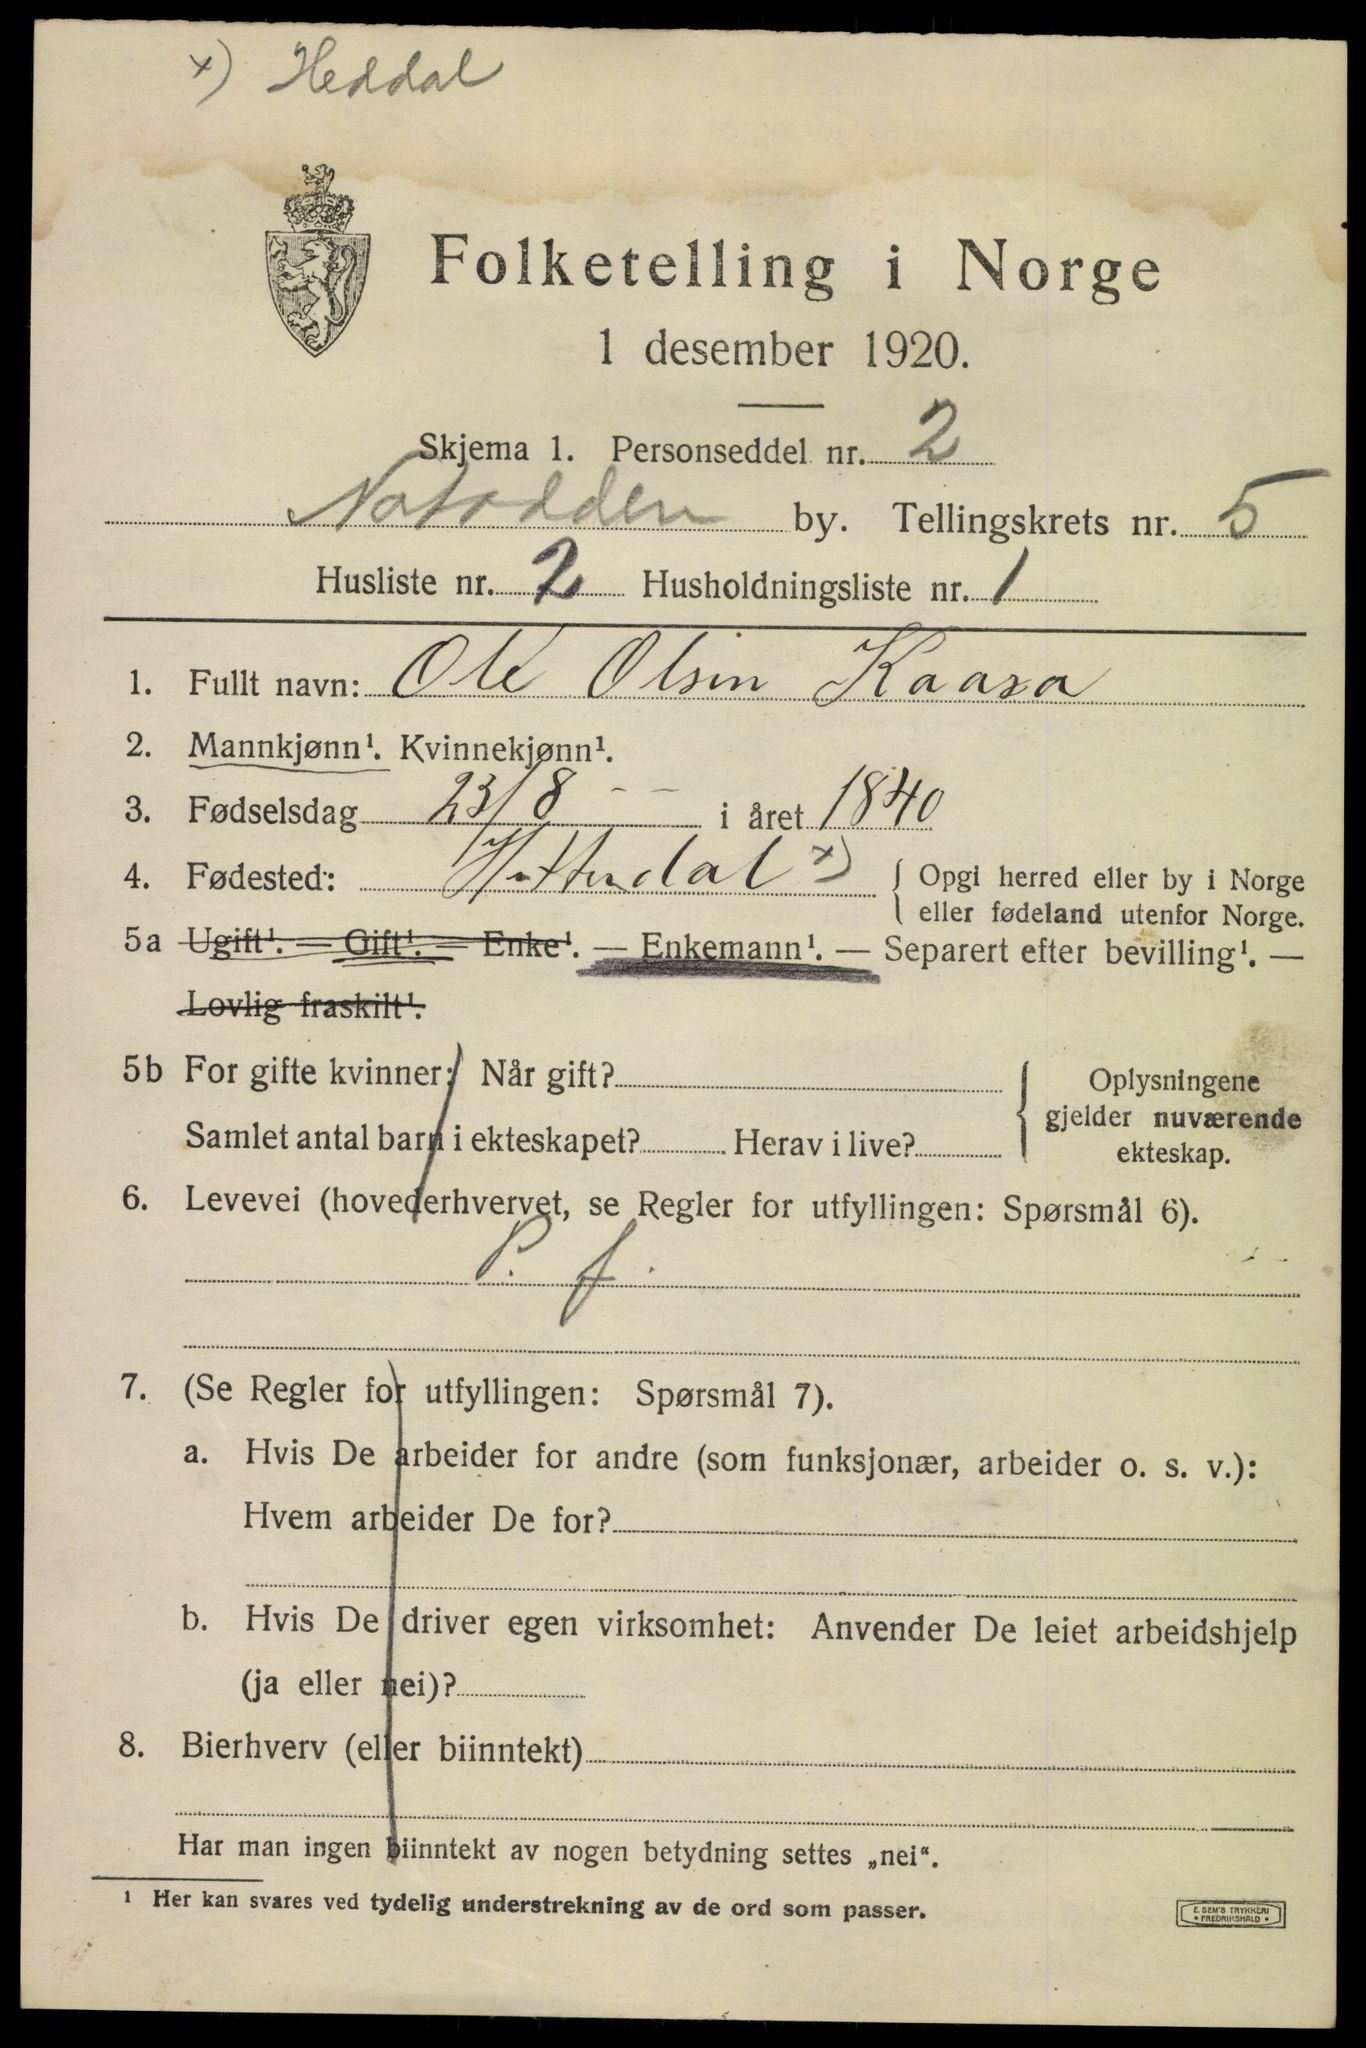 x) Heddal
Folketelling i Norge
1 desember 1920.
Skjema 1. Personseddel nr. 2
Notodden by. Tellingskrets nr. 5
Husliste nr. 2 Husholdningsliste nr. 1
1. Fullt navn: Ole Olsen Kaasa
2. Mannkjønn¹. Kvinnekjønn¹.
3. Fødselsdag 23/8 -- i året 1840
4. Fødested: Hitterdal x) { Opgi herred eller by i Norge
eller fødeland utenfor Norge.
5a Ugift¹. — Gift¹. — Enke¹. — Enkemann¹. — Separert efter bevilling¹. —
Lovlig fraskilt¹.
5b For gifte kvinner: Når gift?
Samlet antal barn i ekteskapet? Herav i live?
{ Oplysningene
gjelder nuværende
ekteskap.
6. Levevei (hovederhvervet, se Regler for utfyllingen: Spørsmål 6).
P. f.
7. (Se Regler for utfyllingen: Spørsmål 7).
a. Hvis De arbeider for andre (som funksjonær, arbeider o. s. v.):
Hvem arbeider De for?
b. Hvis De driver egen virksomhet: Anvender De leiet arbeidshjelp
(ja eller nei)?
8. Bierhverv (eller biinntekt)
Har man ingen biinntekt av nogen betydning settes „nei“.
¹ Her kan svares ved tydelig understrekning av de ord som passer.
E. SEM'S TRYKKERI
• FREDRIKSHALD •